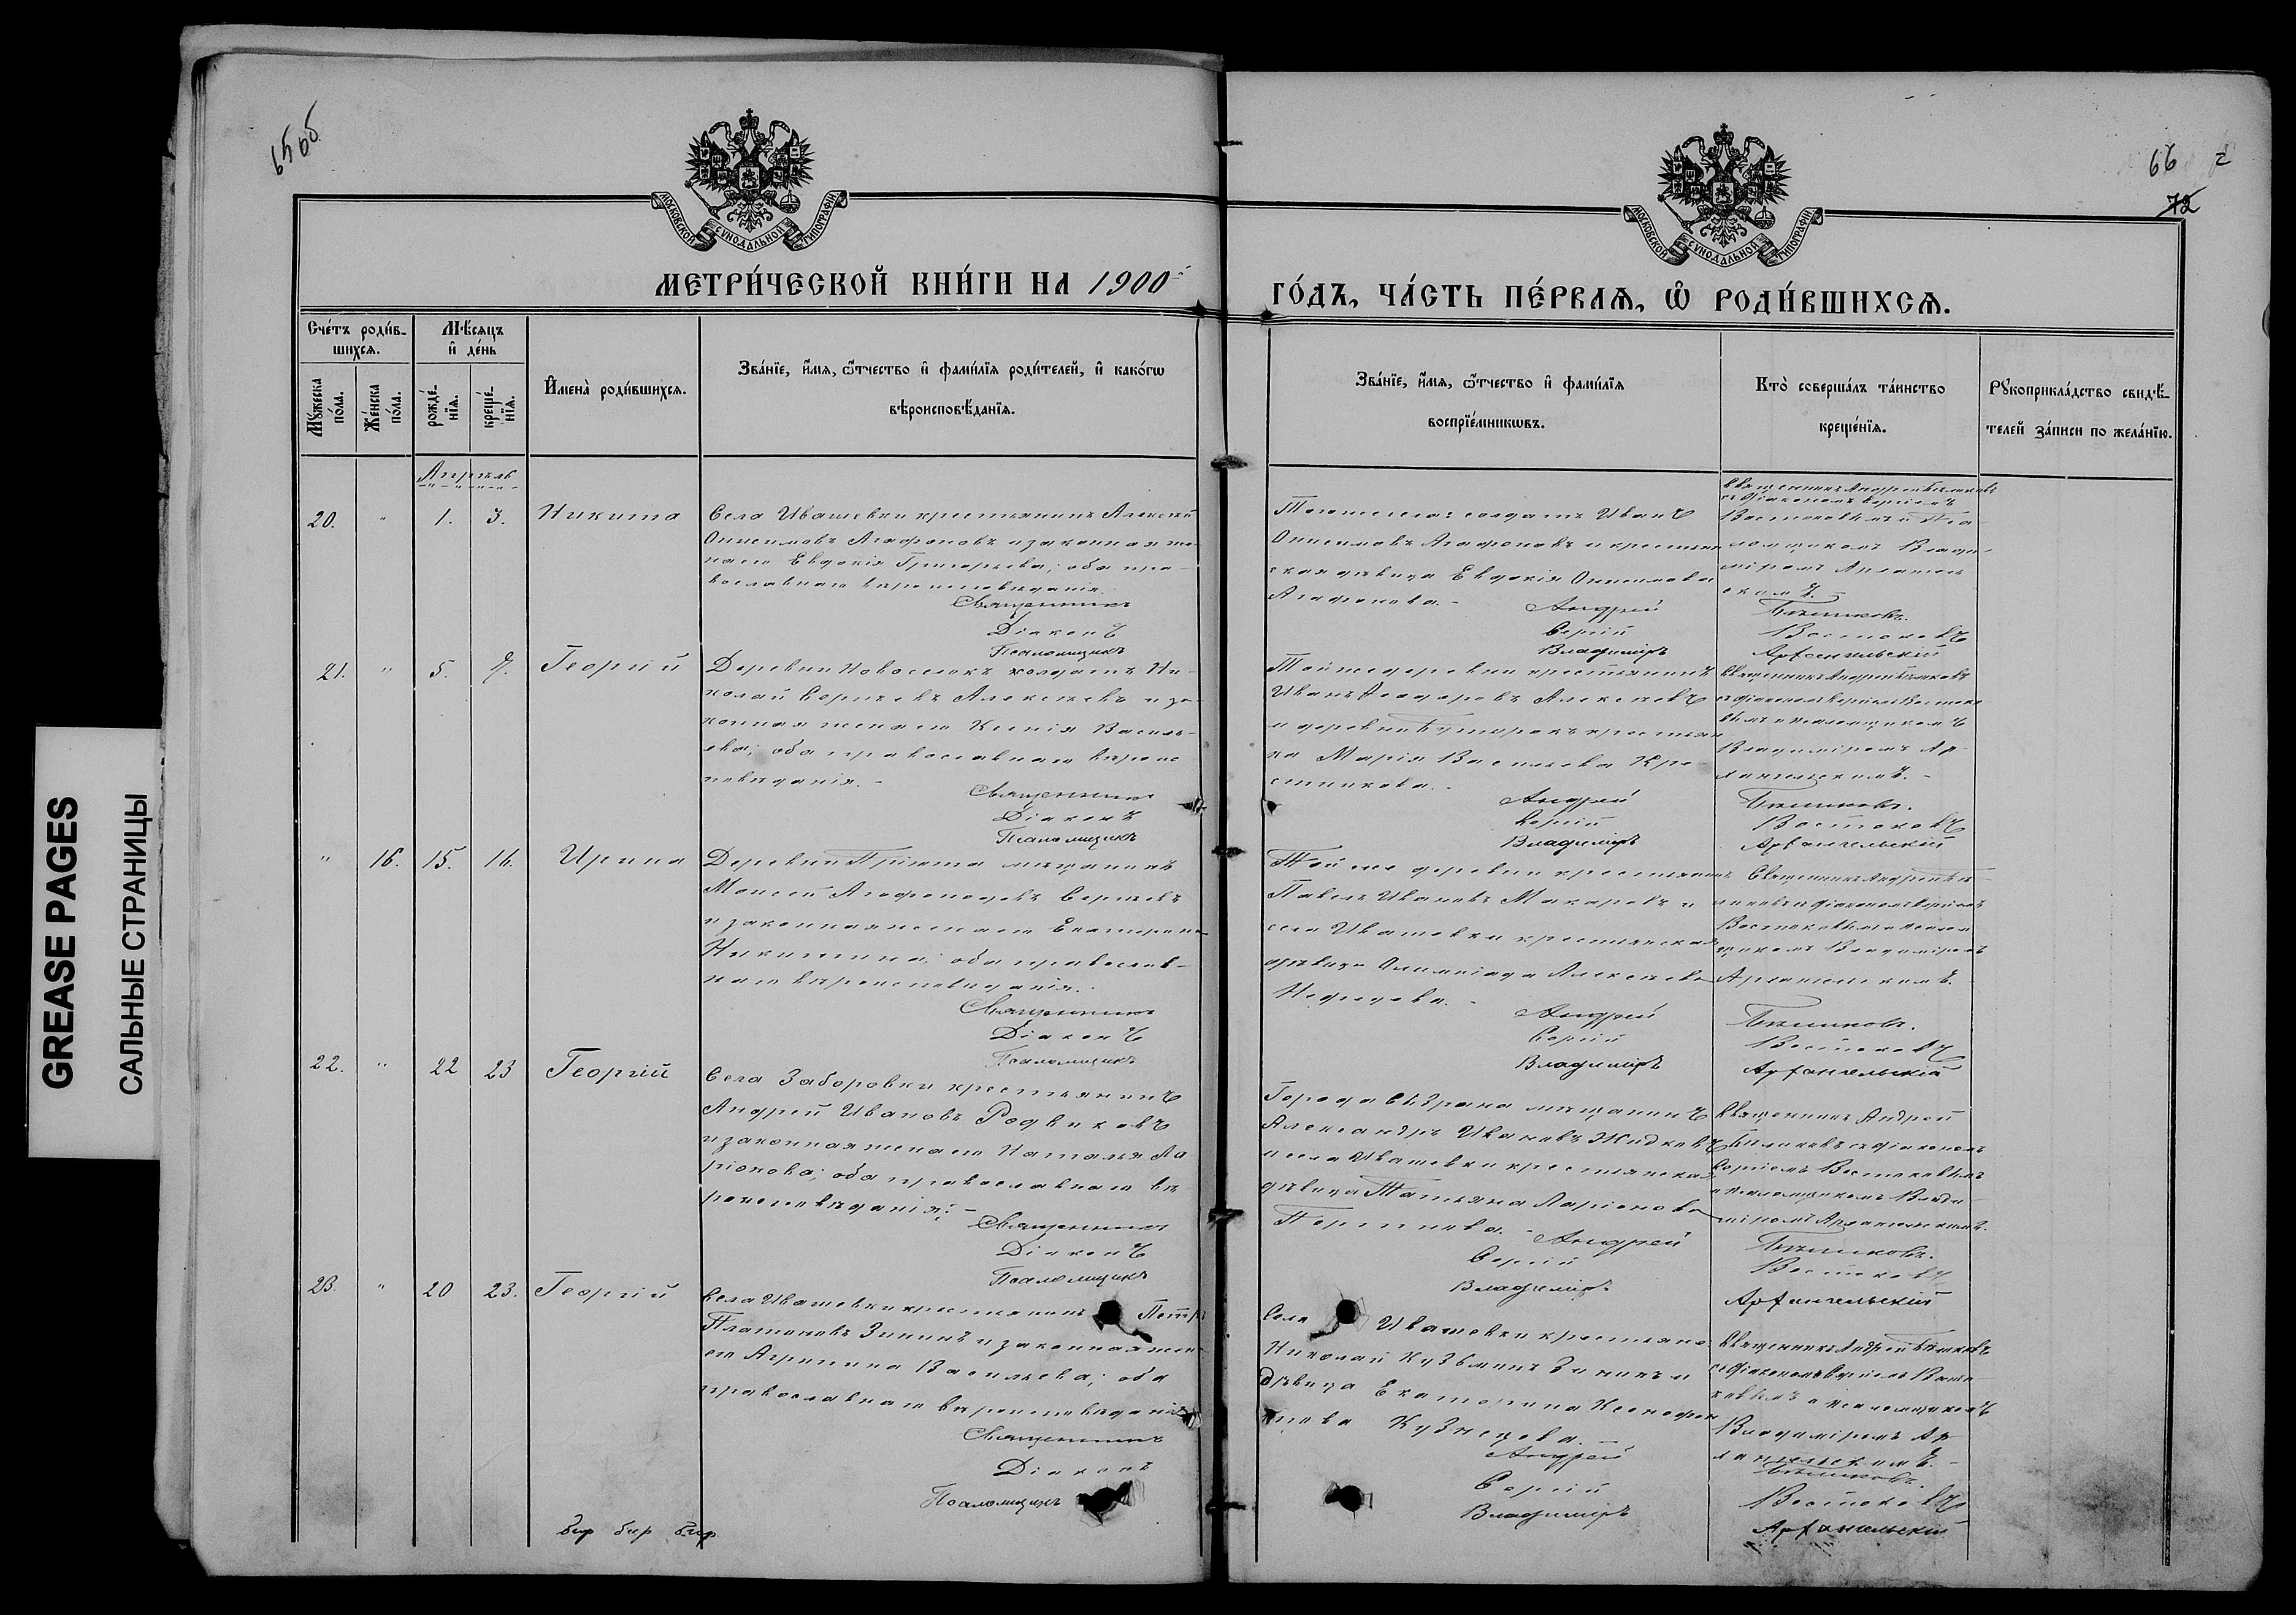 65об
66
72
МОСКОВСКОЙ СУНОДАЛЬНОЙ ТИПОГРАФІИ
МОСКОВСКОЙ СУНОДАЛЬНОЙ ТИПОГРАФІИ
МЕТРИ́ЧЕСКОЙ КНИ́ГИ НА 1900
ГО́ДЪ, ЧА́СТЬ ПЕ́РВАѦ, Ѡ РОДИ́ВШИХСѦ.
Сче́тъ роди́в-
шихсѧ.
Мꙋ́жеска
по́ла.
Же́нска
по́ла.
Мѣ́сѧцъ
и҆ де́нь
рожде́-
нїѧ.
креще́-
нїѧ.
И҆мена̀ роди́вшихсѧ.
Зва́нїе, и҆́мѧ, ѻ҆́тчество и҆ фами́лїѧ роди́телей, и҆ како́гѡ
вѣроисповѣ́данїѧ.
Зва́нїе, и҆́мѧ, ѻ҆́тчество и҆ фами́лїѧ
воспрїе́мникѡвъ.
Кто̀ соверша́лъ та́инство
креще́нїѧ.
Рꙋкоприкла́дство свидѣ́-
телей за́писи по жела́нїю.
Апрѣль
20. " 1. 3. Никита
Села Ивашевки крестьянинъ Алексѣй
Онисимовъ Агафоновъ и законная же-
на его Евдокія Григорьева; оба пра-
вославнаго вѣроисповѣданія.
Священникъ
Діаконъ
Псаломщикъ
Тогоже села солдатъ Иванъ
Онисимовъ Агафоновъ и крестьян
ская дѣвица Евдокія Онисимова
Агафонова. -
Андрей
Сергій
Владиміръ
Священникъ Андрей Бѣляковъ
съ діакономъ Сергіемъ
Востоковымъ и Пса-
ломщикомъ Влади-
міромъ Архангель
скимъ. -
Бѣляковъ.
Востоковъ
Архангельскій
21. " 5. 7. Георгій
Деревни Новоселокъ солдатъ Ни-
колай Сергѣевъ Алексѣевъ и за-
конная жена его Ксенія Василь-
ева; оба православнаго вѣроис
повѣданія. -
Священникъ
Діаконъ
Псаломщикъ
Тойже деревни крестьянинъ
Иванъ Ѳеодоровъ Алексѣевъ
и деревни крестьян
ка Марія Васильева Кре-
стникова. -
Андрей
Сергій
Владиміръ
Священникъ Андрей Бѣляковъ
съ діакономъ Сергіемъ Востоко-
вымъ и псаломщикомъ
Владиміромъ Ар-
хангельскимъ. -
Бѣляковъ.
Востоковъ
Архангельскій
" 16. 15. 16. Ирина
Деревни Пріюта мѣщанинъ
Моисей Агафоподовъ Сергѣевъ
и законная жена его Екатерина
Никитина; оба православ-
наго вѣроисповѣданія. -
Священникъ
Діаконъ
Псаломщикъ
Той же деревни крестьянинъ
Павелъ Ивановъ Макаровъ и
села Ивашевки крестьянская
дѣвица Олимпіада Алексѣева
Нефедова. -
Андрей
Сергій
Владиміръ
Священникъ Андрей Бѣ
ляковъ съ діакономъ Сергіемъ
Востоковымъ и псалом
щикомъ Владиміромъ
Архангельскимъ.
Бѣляковъ.
Востоковъ
Архангельскій
22. " 22 23 Георгій
Села Заборовки крестьянинъ
Андрей Ивановъ Родниковъ
и законная жена его Наталья Ла
ріонова; оба православнаго вѣ
роисповѣданія. -
Священникъ
Діаконъ
Псаломщикъ
Города Сызрана мѣщанинъ
Александръ Ивановъ Жидковъ
и села Ивашевки крестьянская
дѣвица Татьяна Ларіонова
Андрей
Сергій
Владиміръ
Священникъ Андрей
Бѣляковъ съ діакономъ
Сергіемъ Востоковымъ
и псаломщикомъ Влади-
міромъ Архангельскимъ.
Бѣляковъ.
Востоковъ
Архангельскій
23. " 20 23. Георгій
Села Ивашевки крестьянинъ Петръ
Платоновъ Зининъ и законная жена
его Агрипина Васильева; оба
православнаго вѣроисповѣданія
Священникъ
Діаконъ
Псаломщикъ
Села Ивашевки крестьяне
Николай Кузьминъ Зининъ и
дѣвица Екатерина Ксенофон
това Кузнецова. -
Андрей
Сергій
Владиміръ
Священникъ Андрей Бѣляковъ
съ діакономъ Сергіемъ Восто
ковымъ и псаломщикомъ
Владиміромъ Ар-
хангельскимъ. -
Бѣляковъ.
Востоковъ
Архангельскій
GREASE PAGES
САЛЬНЫЕ СТРАНИЦЫ